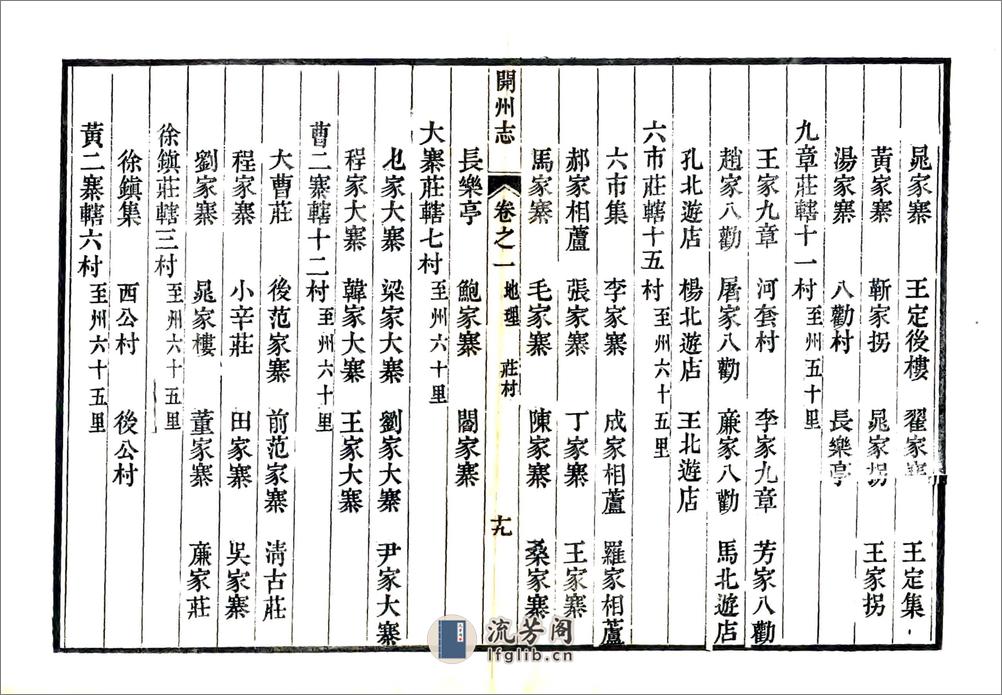 晁家寨 王定後樓 翟家寨 王定集
黃家寨 靳家拐 晁家拐 王家拐
湯家寨 八勸村 長樂亭
九章莊轄十一村 至州五十里
王家九章 河套村 李家九章 芳家八勸
趙家八勸 屠家八勸 亷家八勸 馬北遊店
孔北遊店 楊北遊店 王北遊店
六市莊轄十五村 至州六十五里
六市集 李家寨 成家相蘆 羅家相蘆
郝家相蘆 張家寨 丁家寨 王家寨
馬家寨 毛家寨 陳家寨 桑家寨
開州志 卷之一 地理 莊村 十九
長樂亭 鮑家寨 閻家寨
大寨莊轄七村 至州六十里
乜家大寨 梁家大寨 劉家大寨 尹家大寨
程家大寨 韓家大寨 王家大寨
曹二寨轄十二村 至州六十里
大曹莊 後范家寨 前范家寨 淸古莊
程家寨 小辛莊 田家寨 吳家寨
劉家寨 晁家樓 董家寨 亷家莊
徐鎭莊轄三村 至州六十五里
徐鎭集 西公村 後公村
黃二寨轄六村 至州六十五里
流芳阁
lfglib.cn